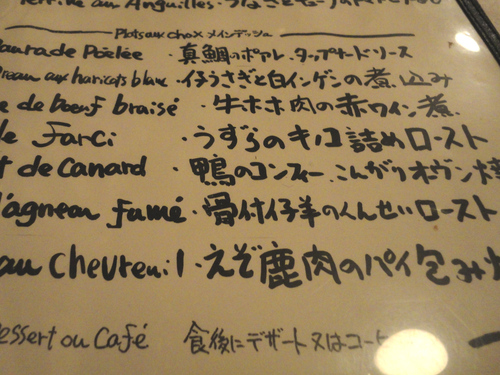 aux Anguilles・うなぎと
Plats aux choix メインディッシュ
Daurade Poêlée・真鯛のポアレ、タップナードソース
aux haricots blanc・仔うさぎと白インゲンの煮込み
de boeuf braisé・牛ホホ肉の赤ワイン煮
farci・うずらのキノコ詰めロースト
de Canard・鴨のコンフィー、こんがりオヴン焼
d'agneau fumé・骨付仔羊のくんせいロースト
au chevreuil・えぞ鹿肉のパイ包み
Dessert ou Café 食後にデザート又はコーヒ